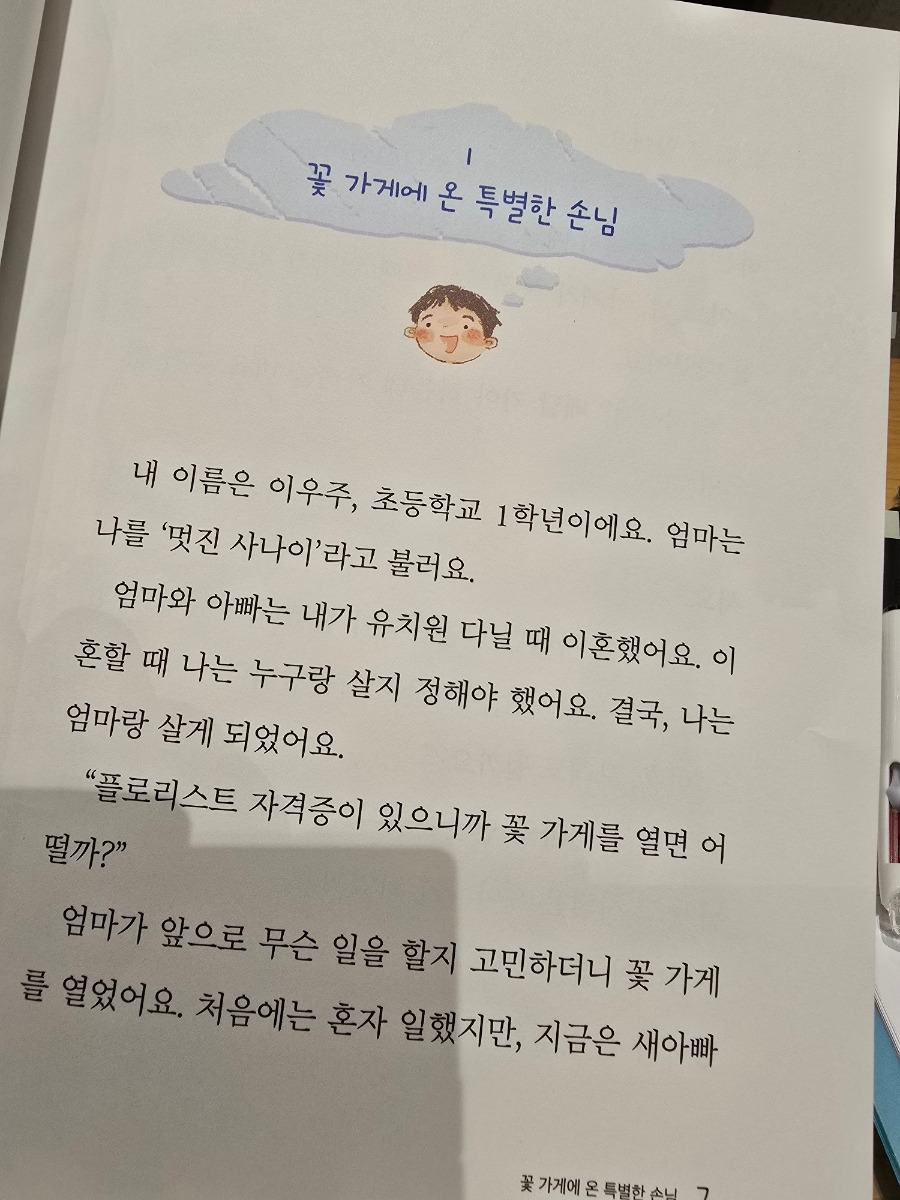 1
꽃 가게에 온 특별한 손님
내 이름은 이우주, 초등학교 1학년이에요. 엄마는
나를 ‘멋진 사나이’라고 불러요.
엄마와 아빠는 내가 유치원 다닐 때 이혼했어요. 이
혼할 때 나는 누구랑 살지 정해야 했어요. 결국, 나는
엄마랑 살게 되었어요.
“플로리스트 자격증이 있으니까 꽃 가게를 열면 어
떨까?”
엄마가 앞으로 무슨 일을 할지 고민하더니 꽃 가게
를 열었어요. 처음에는 혼자 일했지만, 지금은 새아빠
꽃 가게에 온 특별한 손님 7